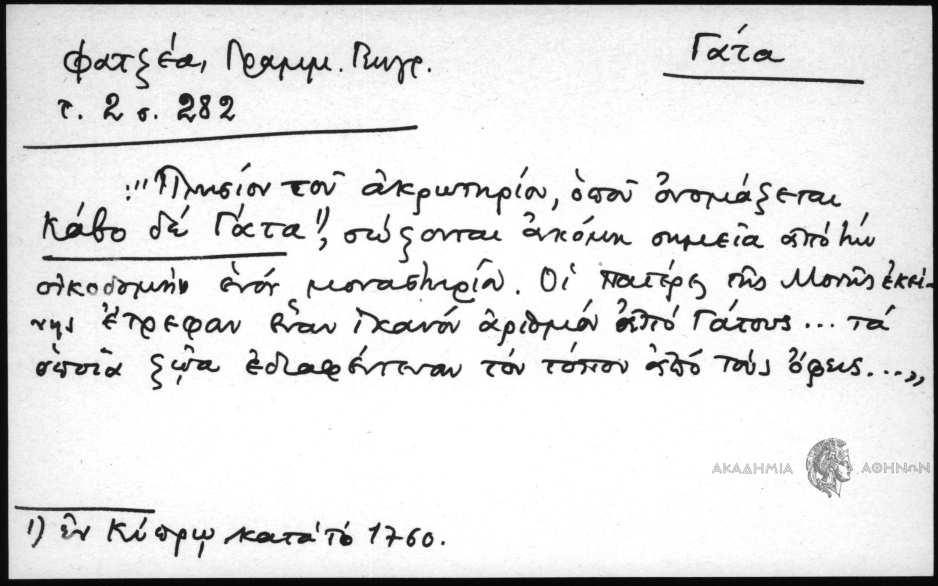 Φατζέα, Γραμμ. Γεωγρ.
Γάτα
τ. 2 σ. 282
:"Πλησίον τοῦ ἀκρωτηρίου, ὁποῦ ὀνομάζεται
Κάβο δέ Γάτα¹⁾, σώζονται ἀκόμη σημεῖα ἀπό τήν
οἰκοδομήν ἑνός μοναστηρίου. Οἱ πατέρες τῆς Μονῆς ἐκεί-
νης ἔτρεφαν ἕναν ἱκανόν ἀριθμόν ἀπό Γάτους... τά
ὁποῖα ζῷα ἐδιαφέντευαν τόν τόπον ἀπό τούς ὄφεις...„
ΑΚΑΔΗΜΙΑ ΑΘΗΝΩΝ
1) ἐν Κύπρῳ κατά τό 1760.